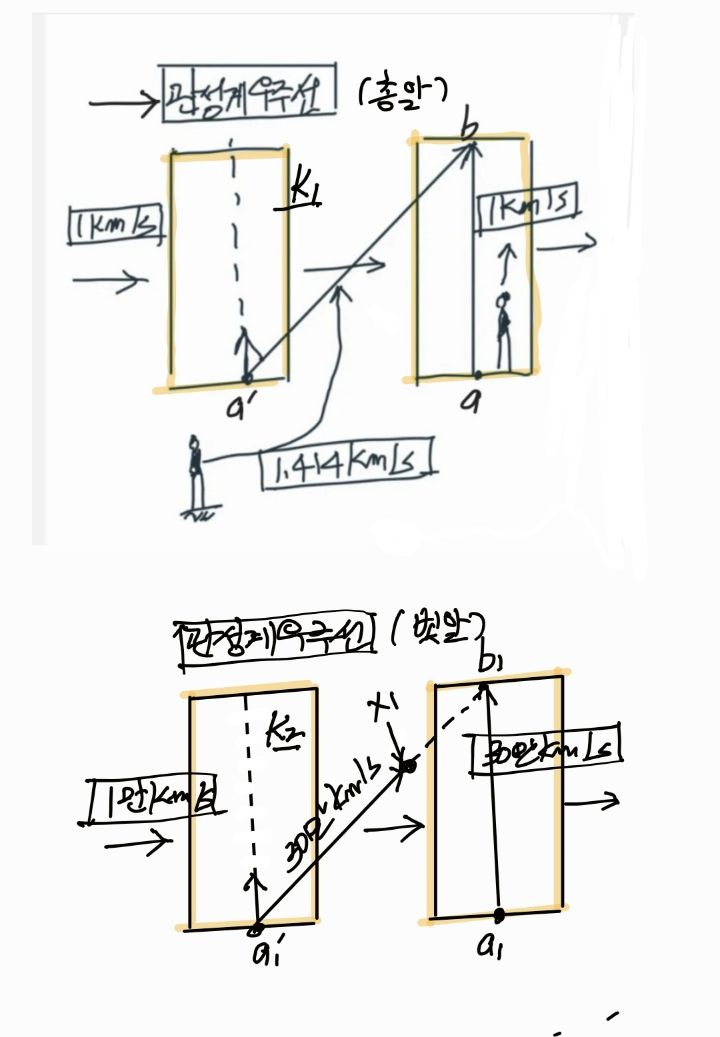 관성계우주선 (총알)
b
K₁
1km/s
1km/s
a′
a
1.414km/s
관성계우주선 (빛알)
b₁
x₁
K₂
30만km/s
1만km/s
30만km/s
a₁′
a₁